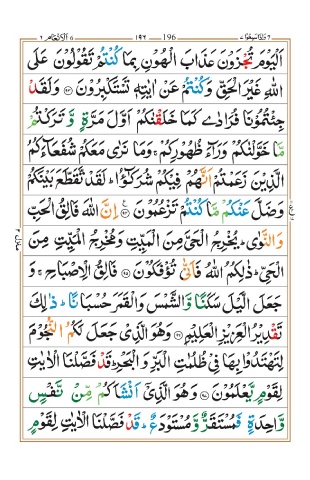 وَاِذَا سَمِعُوْا ٧ 196 ١٩٦ اَلْاَنْعَام ٦
اَلْيَوْمَ تُجْزَوْنَ عَذَابَ الْهُوْنِ بِمَا كُنْتُمْ تَقُوْلُوْنَ عَلَى
اللّٰهِ غَيْرَ الْحَقِّ وَكُنْتُمْ عَنْ اٰيٰتِهٖ تَسْتَكْبِرُوْنَ ۝ وَلَقَدْ
جِئْتُمُوْنَا فُرَادٰى كَمَا خَلَقْنٰكُمْ اَوَّلَ مَرَّةٍ وَّ تَرَكْتُمْ
مَّا خَوَّلْنٰكُمْ وَرَآءَ ظُهُوْرِكُمْ ۚ وَمَا نَرٰى مَعَكُمْ شُفَعَآءَكُمُ
الَّذِيْنَ زَعَمْتُمْ اَنَّهُمْ فِيْكُمْ شُرَكٰٓؤُا ؕ لَقَدْ تَّقَطَّعَ بَيْنَكُمْ
وَضَلَّ عَنْكُمْ مَّا كُنْتُمْ تَزْعُمُوْنَ ۝ اِنَّ اللّٰهَ فَالِقُ الْحَبِّ
وَالنَّوٰى ؕ يُخْرِجُ الْحَيَّ مِنَ الْمَيِّتِ وَمُخْرِجُ الْمَيِّتِ مِنَ
الْحَيِّ ؕ ذٰلِكُمُ اللّٰهُ فَاَنّٰى تُؤْفَكُوْنَ ۝ فَالِقُ الْاِصْبَاحِ ۚ وَ
جَعَلَ الَّيْلَ سَكَنًا وَّالشَّمْسَ وَالْقَمَرَ حُسْبَانًا ؕ ذٰلِكَ
تَقْدِيْرُ الْعَزِيْزِ الْعَلِيْمِ ۝ وَهُوَ الَّذِيْ جَعَلَ لَكُمُ النُّجُوْمَ
لِتَهْتَدُوْا بِهَا فِيْ ظُلُمٰتِ الْبَرِّ وَ الْبَحْرِ ؕ قَدْ فَصَّلْنَا الْاٰيٰتِ
لِقَوْمٍ يَّعْلَمُوْنَ ۝ وَهُوَ الَّذِيْٓ اَنْشَاَكُمْ مِّنْ نَّفْسٍ
وَّاحِدَةٍ فَمُسْتَقَرٌّ وَّ مُسْتَوْدَعٌ ؕ قَدْ فَصَّلْنَا الْاٰيٰتِ لِقَوْمٍ